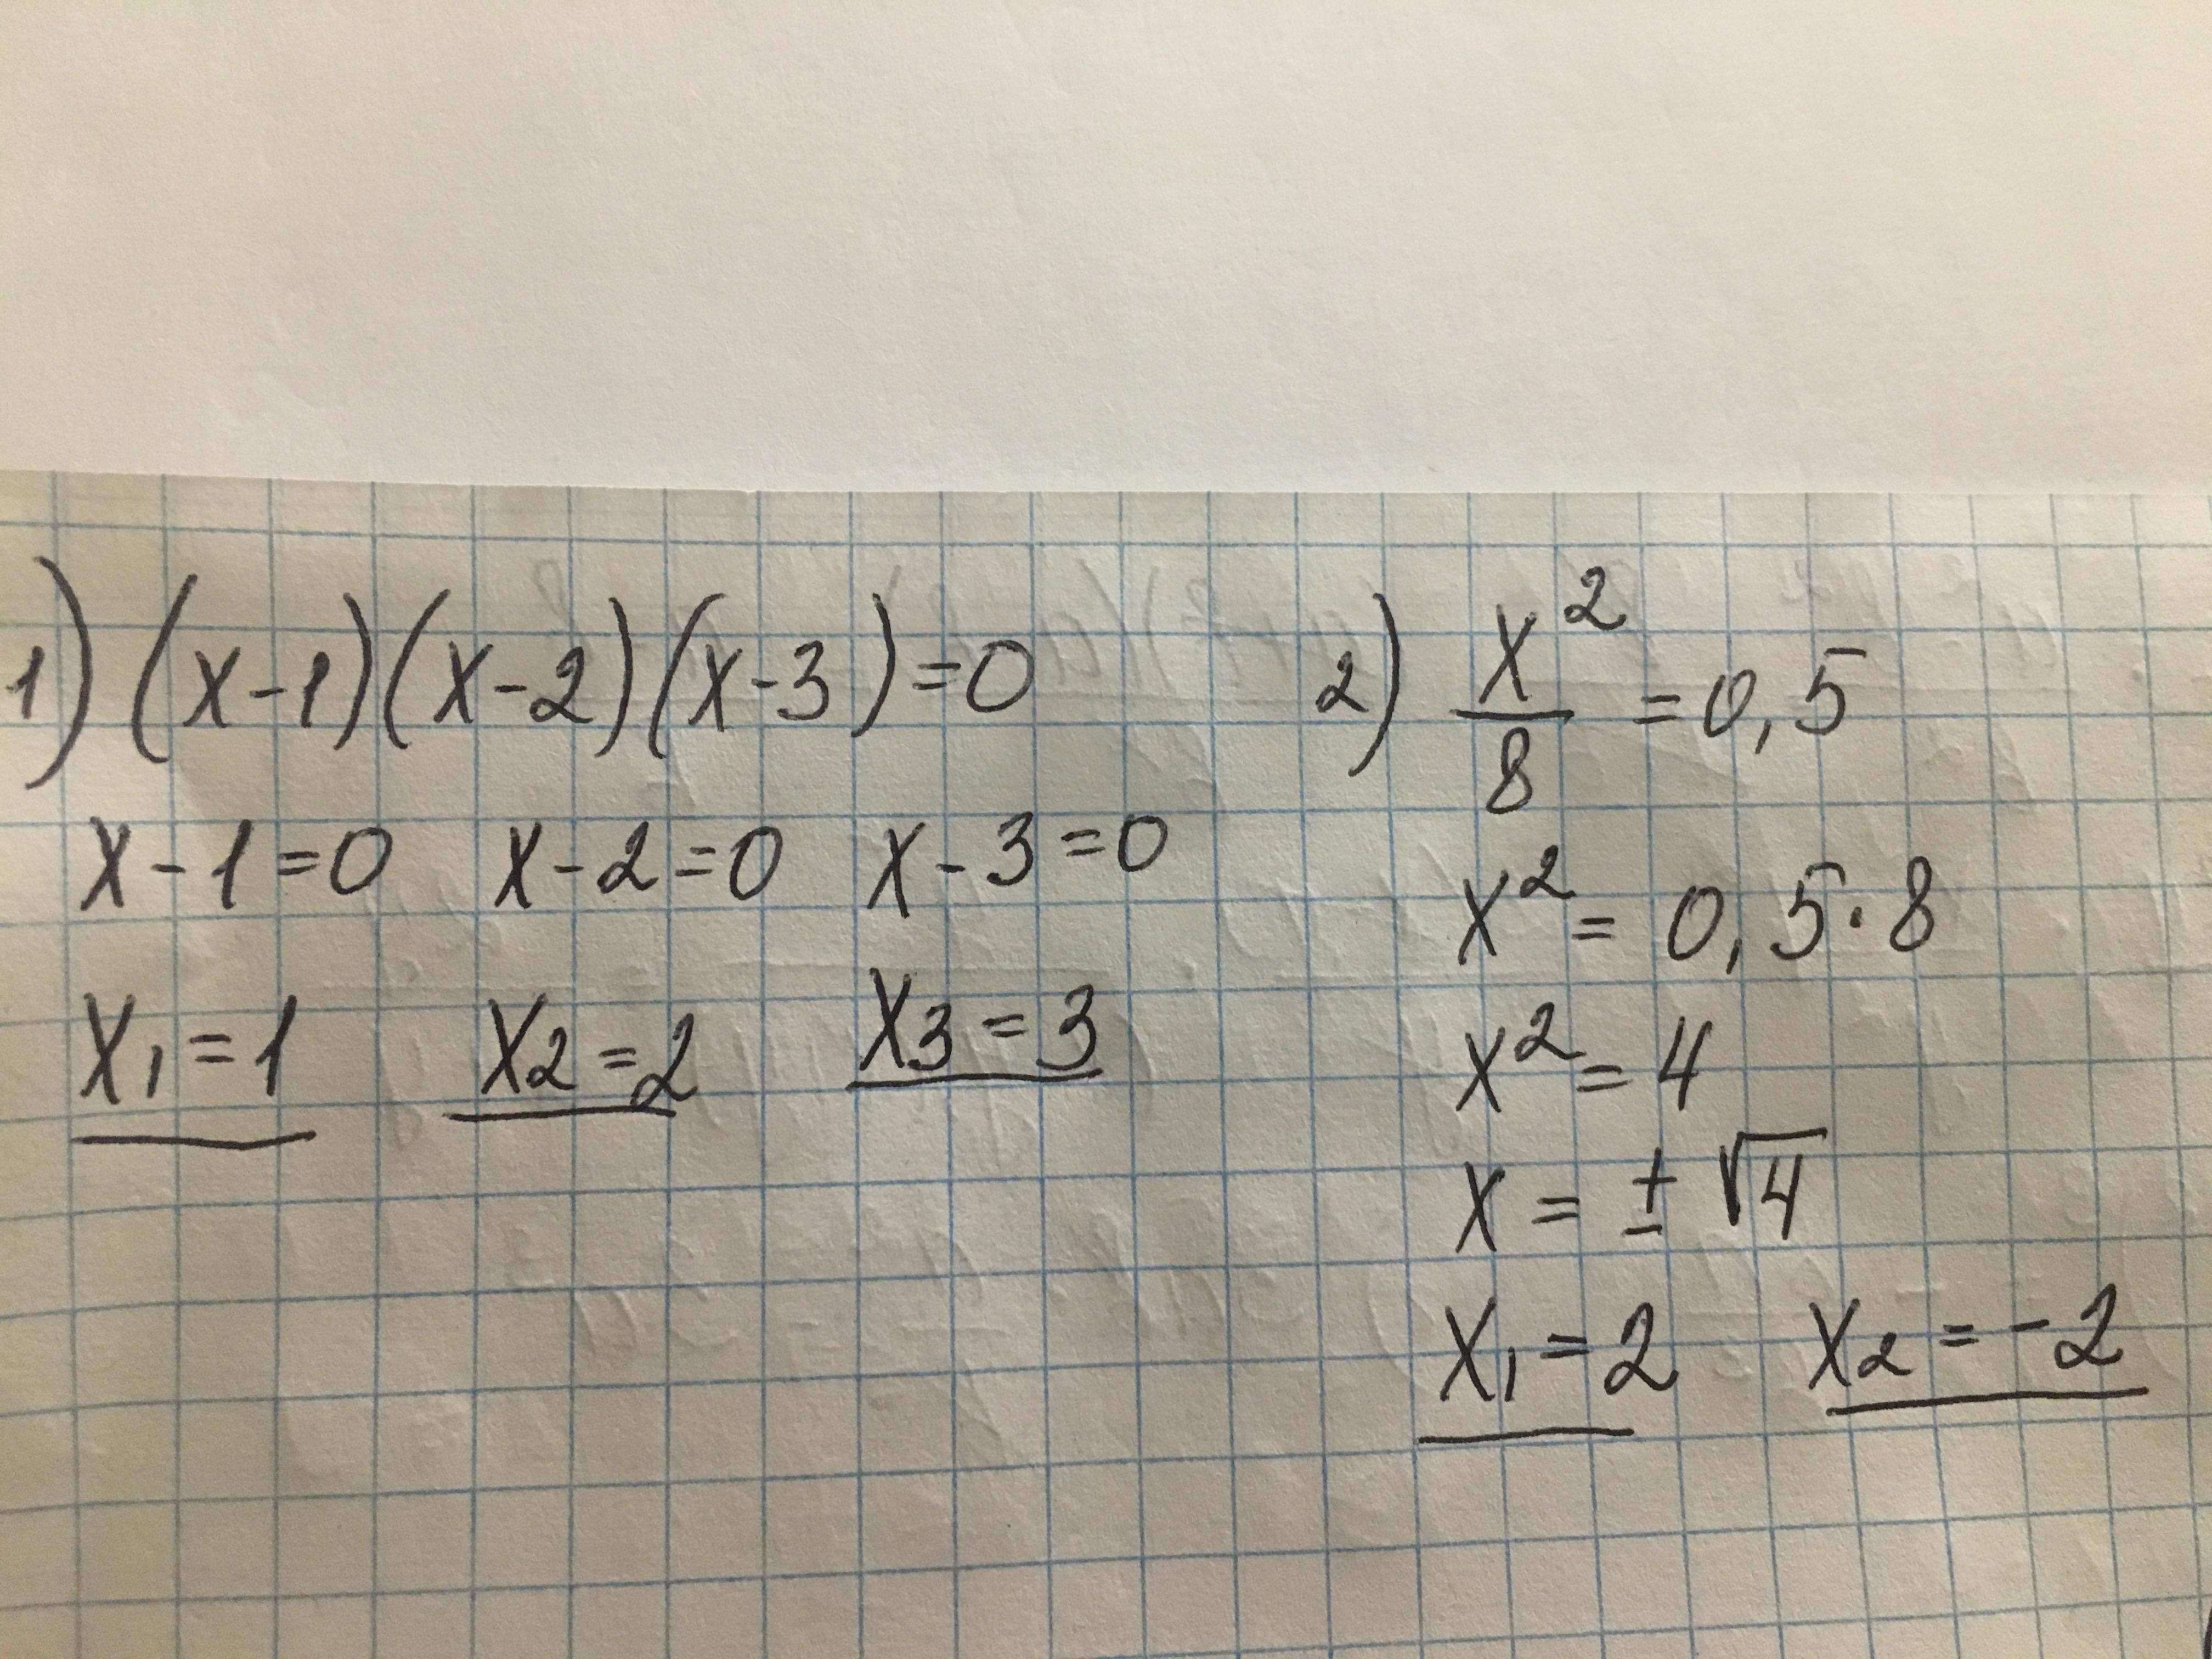 1) (x-1)(x-2)(x-3)=0
x-1=0 x-2=0 x-3=0
x₁=1 x₂=2 x₃=3
2) x²/8 =0,5
x²= 0,5·8
x²=4
x = ± √4
x₁=2 x₂=-2